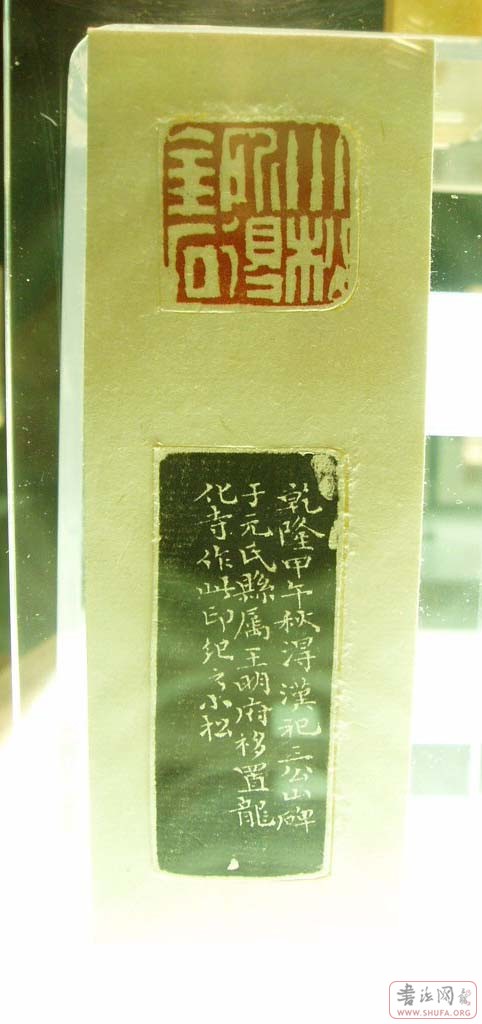 小松
所得
金石
乾隆甲午秋得漢祀三公山碑
于元氏縣属王明府移置龍
化寺作此印紀之小松
書法网
WWW.SHUFA.ORG